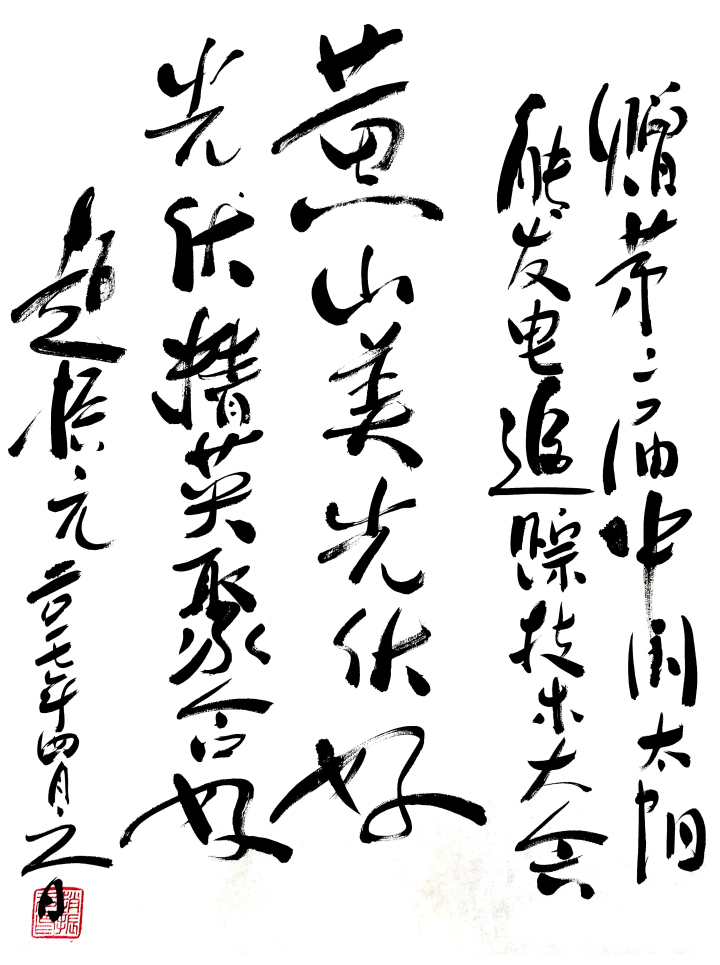 赠第二届中国太阳
能发电追踪技术大会
黄山美光伏好
光伏精英聚合好
赵振元二〇一七年四月日